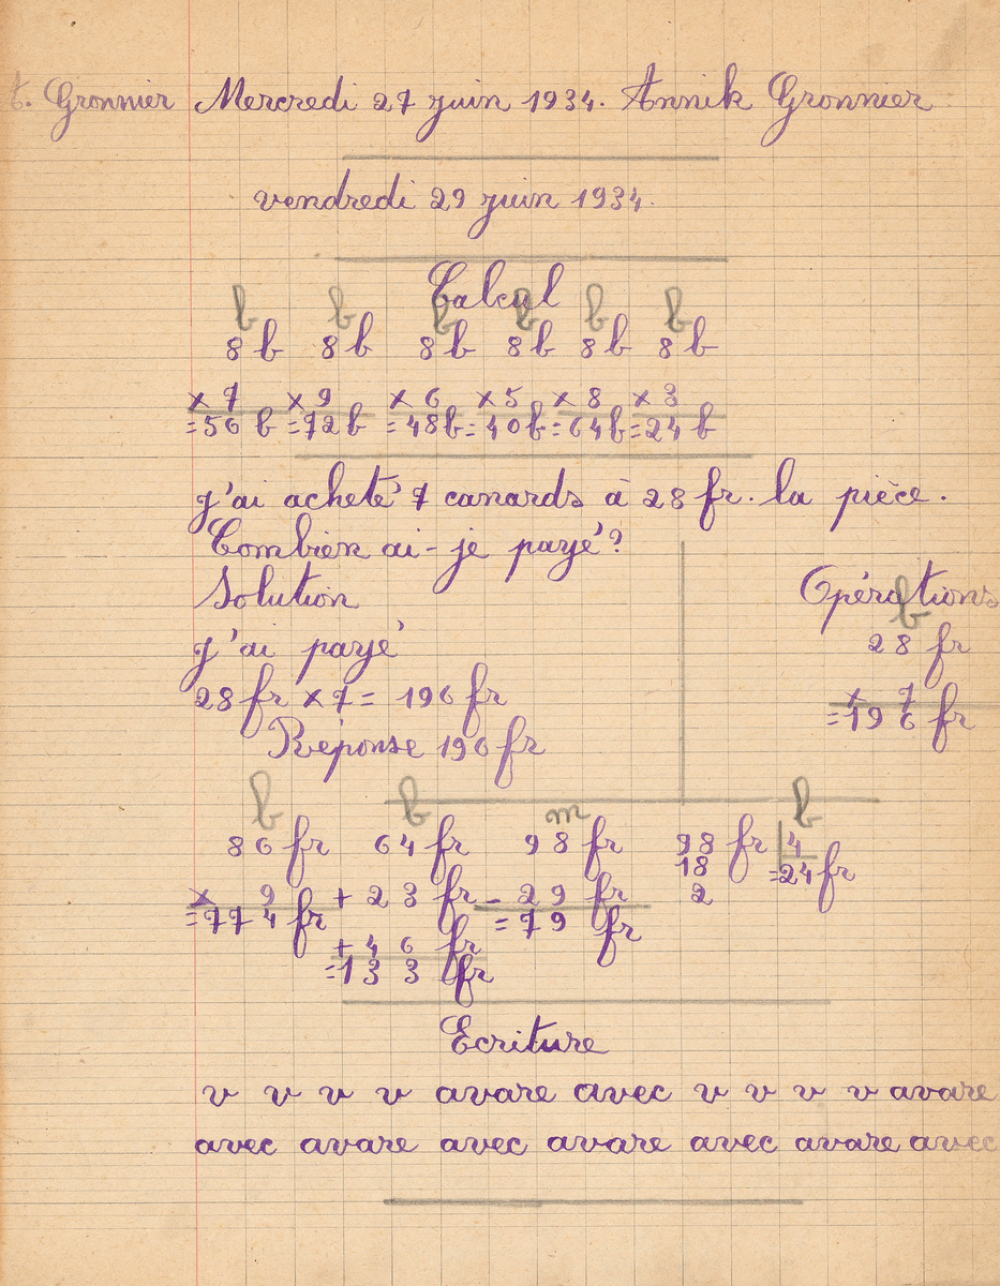 A. Gronnier Mercredi 27 juin 1934. Annik Gronnier
vendredi 29 juin 1934.
Calcul
b b b b b b
8 b 8 b 8 b 8 b 8 b 8 b
x 7 x 9 x 6 x 5 x 8 x 3
=56 b =72 b =48 b =40 b =64 b =24 b
j'ai acheté 7 canards à 28 fr. la pièce.
Combien ai-je payé?
Solution
Opérations
b
j'ai payé
28 fr
28 fr x 7 = 196 fr
x 7
=19 6 fr
Réponse 196 fr
b b m b
86 fr 64 fr 98 fr 98 fr 4
18 =24 fr
x 9 + 23 fr - 29 fr 2
=774 fr =79 fr
+ 46 fr
=133 fr
Ecriture
v v v v avare avec v v v v avare
avec avare avec avare avec avare avec